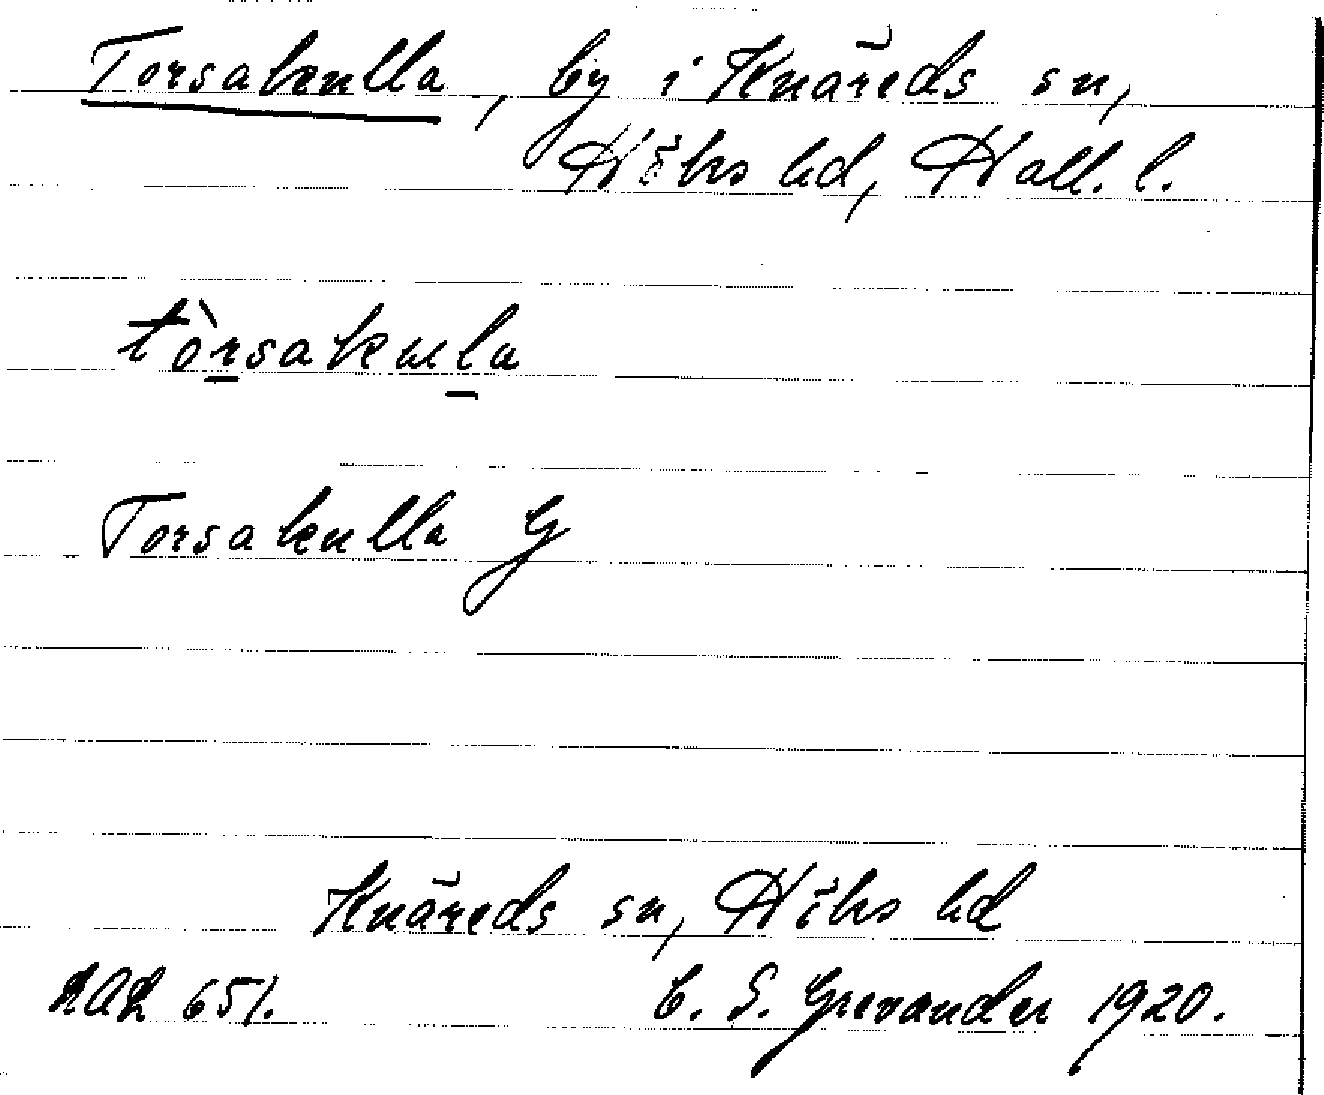 Torsakulla, by i Knäreds sn,
Höks hd, Hall. l.
tòrsakula
Torsakulla G
Knäreds sn, Höks hd
651. C. S. Grevander 1920.